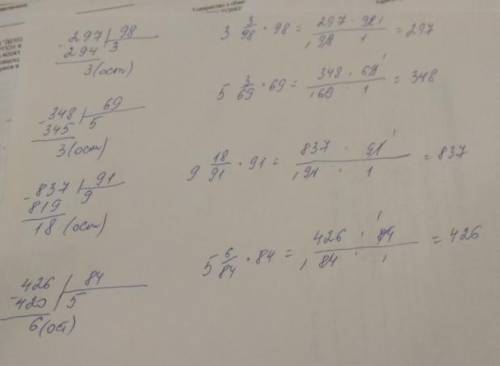 297 | 98
- 294 | 3
3 (ост)
348 | 69
- 345 | 5
3 (ост)
837 | 91
- 819 | 9
18 (ост)
426 | 84
- 420 | 5
6 (ост)
3 3/98 · 98 = 297 · 98 / 98 · 1 = 297
5 3/69 · 69 = 348 · 69 / 69 · 1 = 348
9 18/91 · 91 = 837 · 91 / 91 · 1 = 837
5 6/84 · 84 = 426 · 84 / 84 · 1 = 426